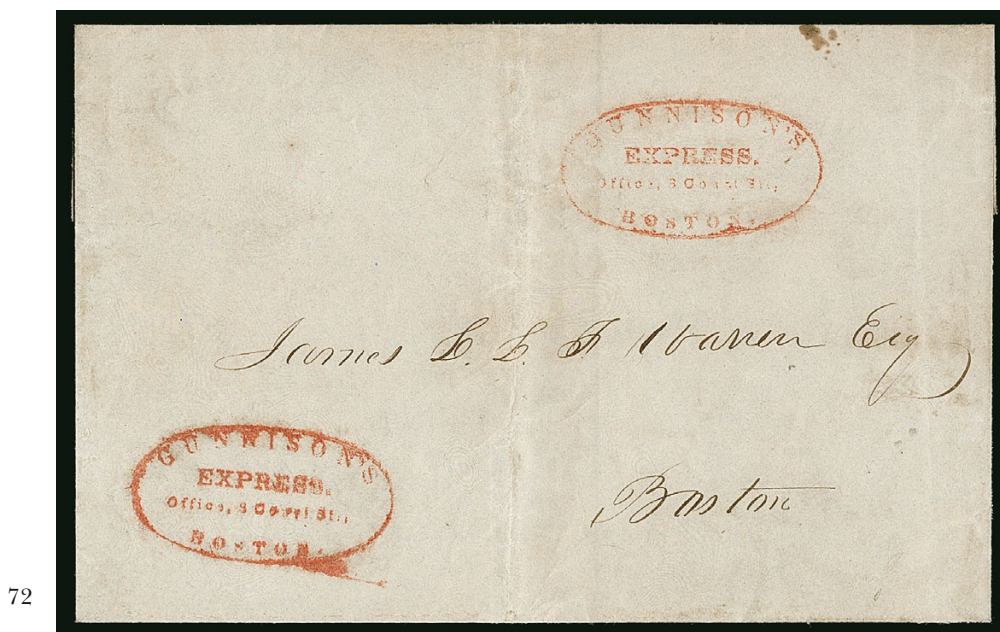 GUNNISON'S
EXPRESS.
Office, 8 Court Str,
BOSTON.
James L. L. F Warren Esq
GUNNISON'S
EXPRESS.
Office, 8 Court Str,
BOSTON.
Boston
72